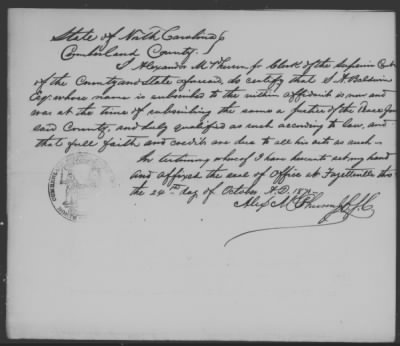 State of North Carolina
Cumberland County.
I Alexander McPherson Jr Clerk of the Superior Court
of the County and State aforesaid, do certify that
Esq. whose name is subscribed to the within affidavit is now and
was at the time of subscribing the same a Justice of the Peace
said County, and duly qualified as such according to law, and
that full faith and credit are due to all his acts as such.
In testimony whereof I have hereunto set my hand
and affixed the seal of Office at Fayetteville this
the 24th day of October A.D.
Alex McPherson Jr C.S.C